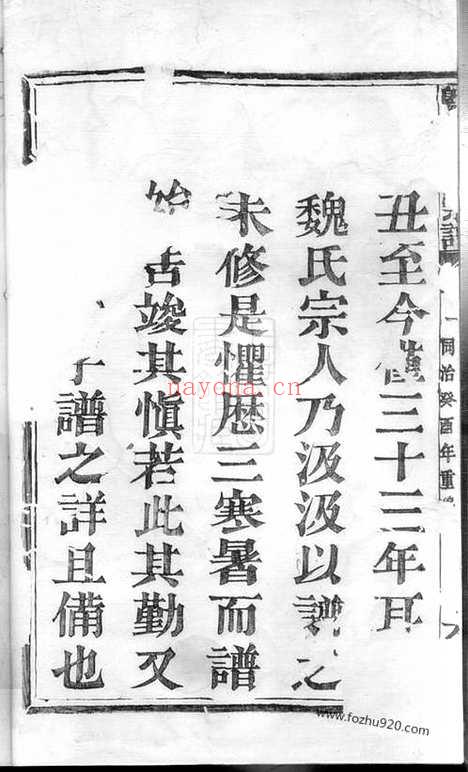 丑至今僅三十三年耳
魏氏宗人乃汲汲以譜之
未修是懼歷三寒暑而譜
始告竣其慎若此其勤又
譜之詳且備也
同治癸酉年重
nayona.cn
www.fozhu920.com